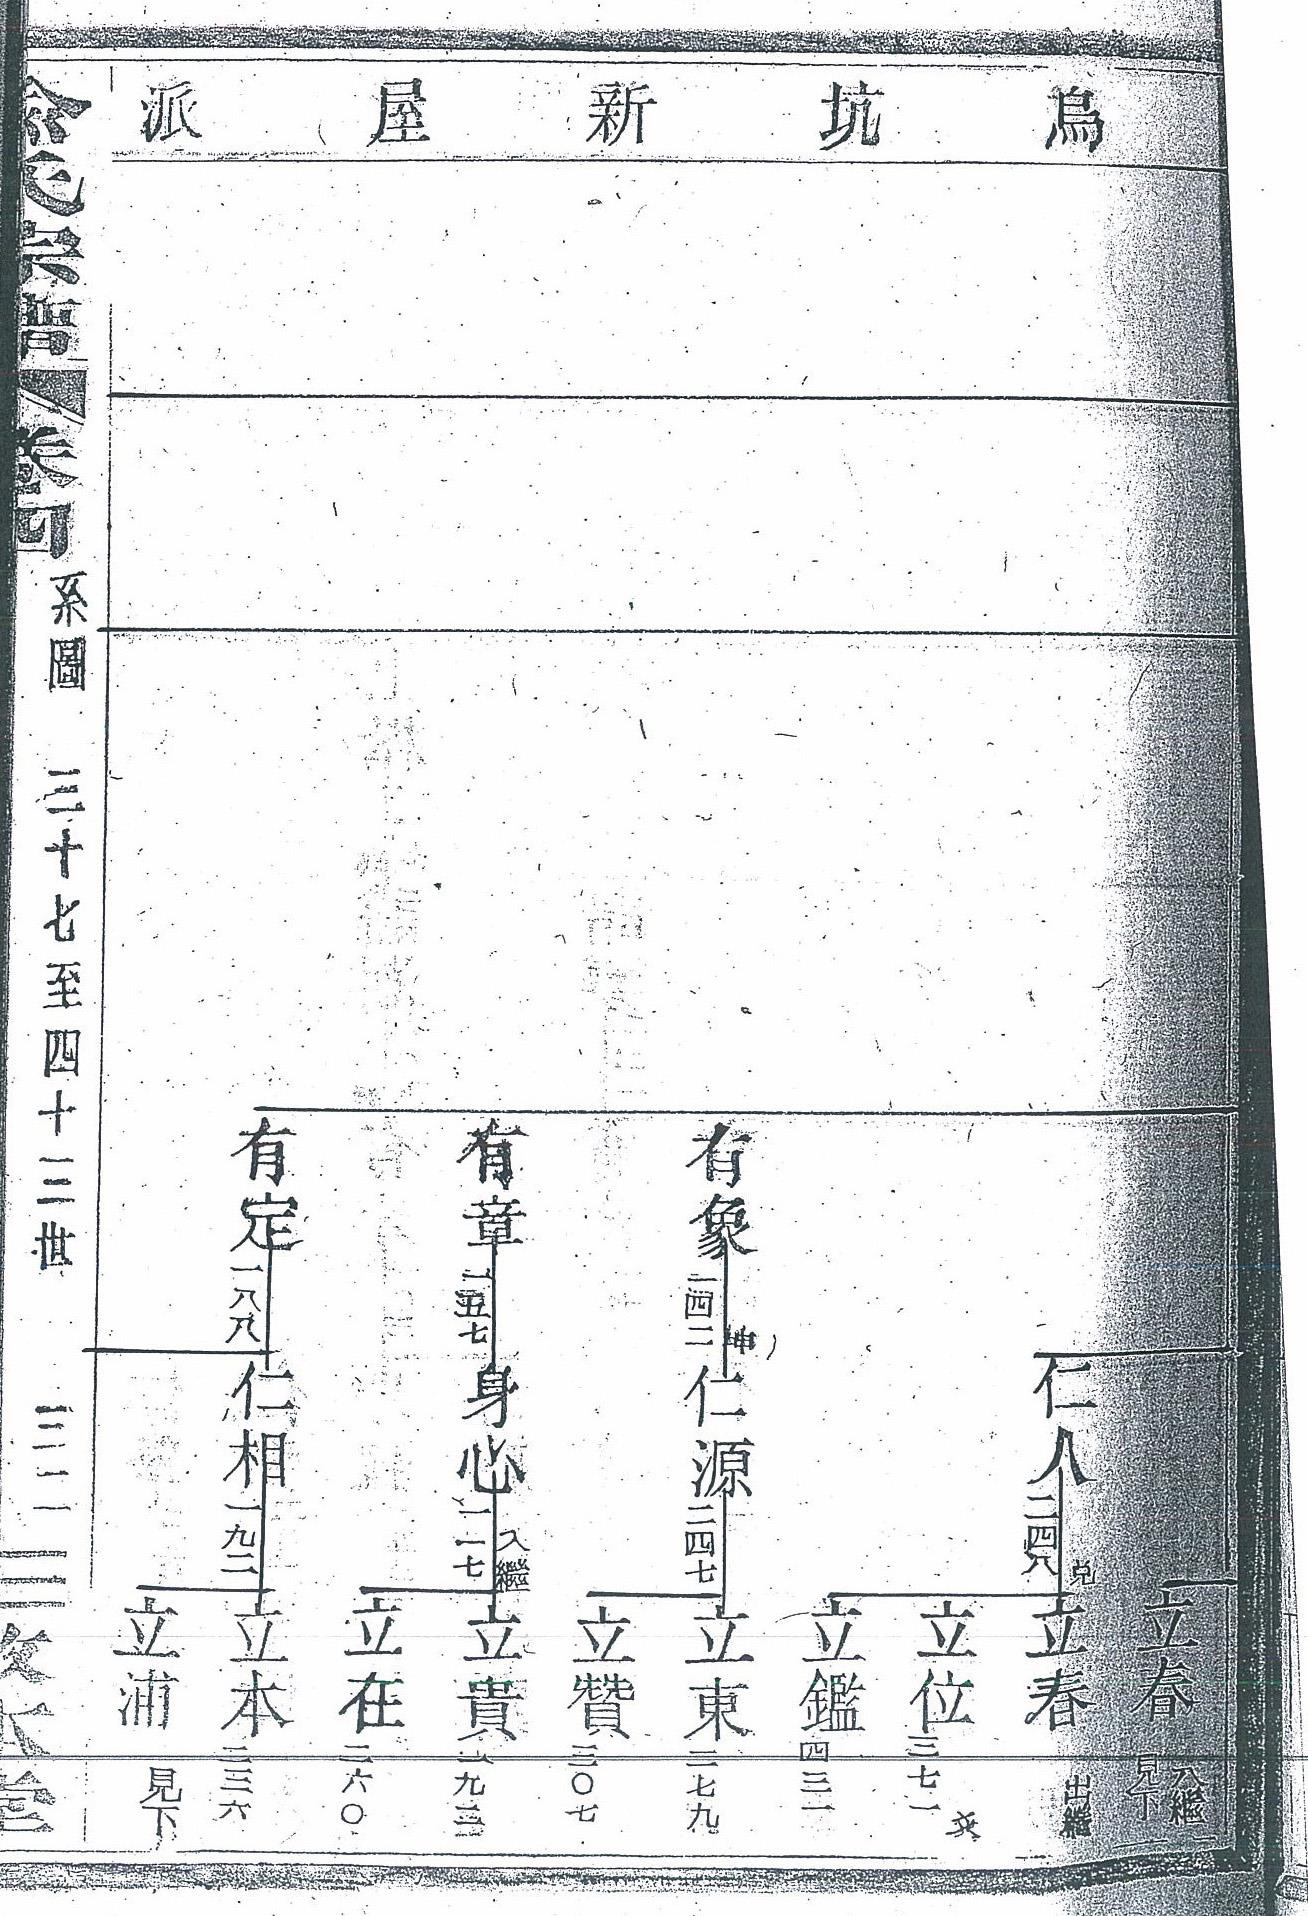 烏坑新屋派
立春
入繼
見下
仁人
二四八
兑
立春
出繼
立位
三七一
立鑑
四三一
有象
一四二
坤
仁源
二四七
立東
二七九
立贊
三〇七
有章
一五七
身心
一一七
入繼
立貴
立在
二六〇
有定
一八八
仁相
一九二
立本
二三六
立浦
見下
俞氏宗譜
卷四
系圖
三十七至四十三世